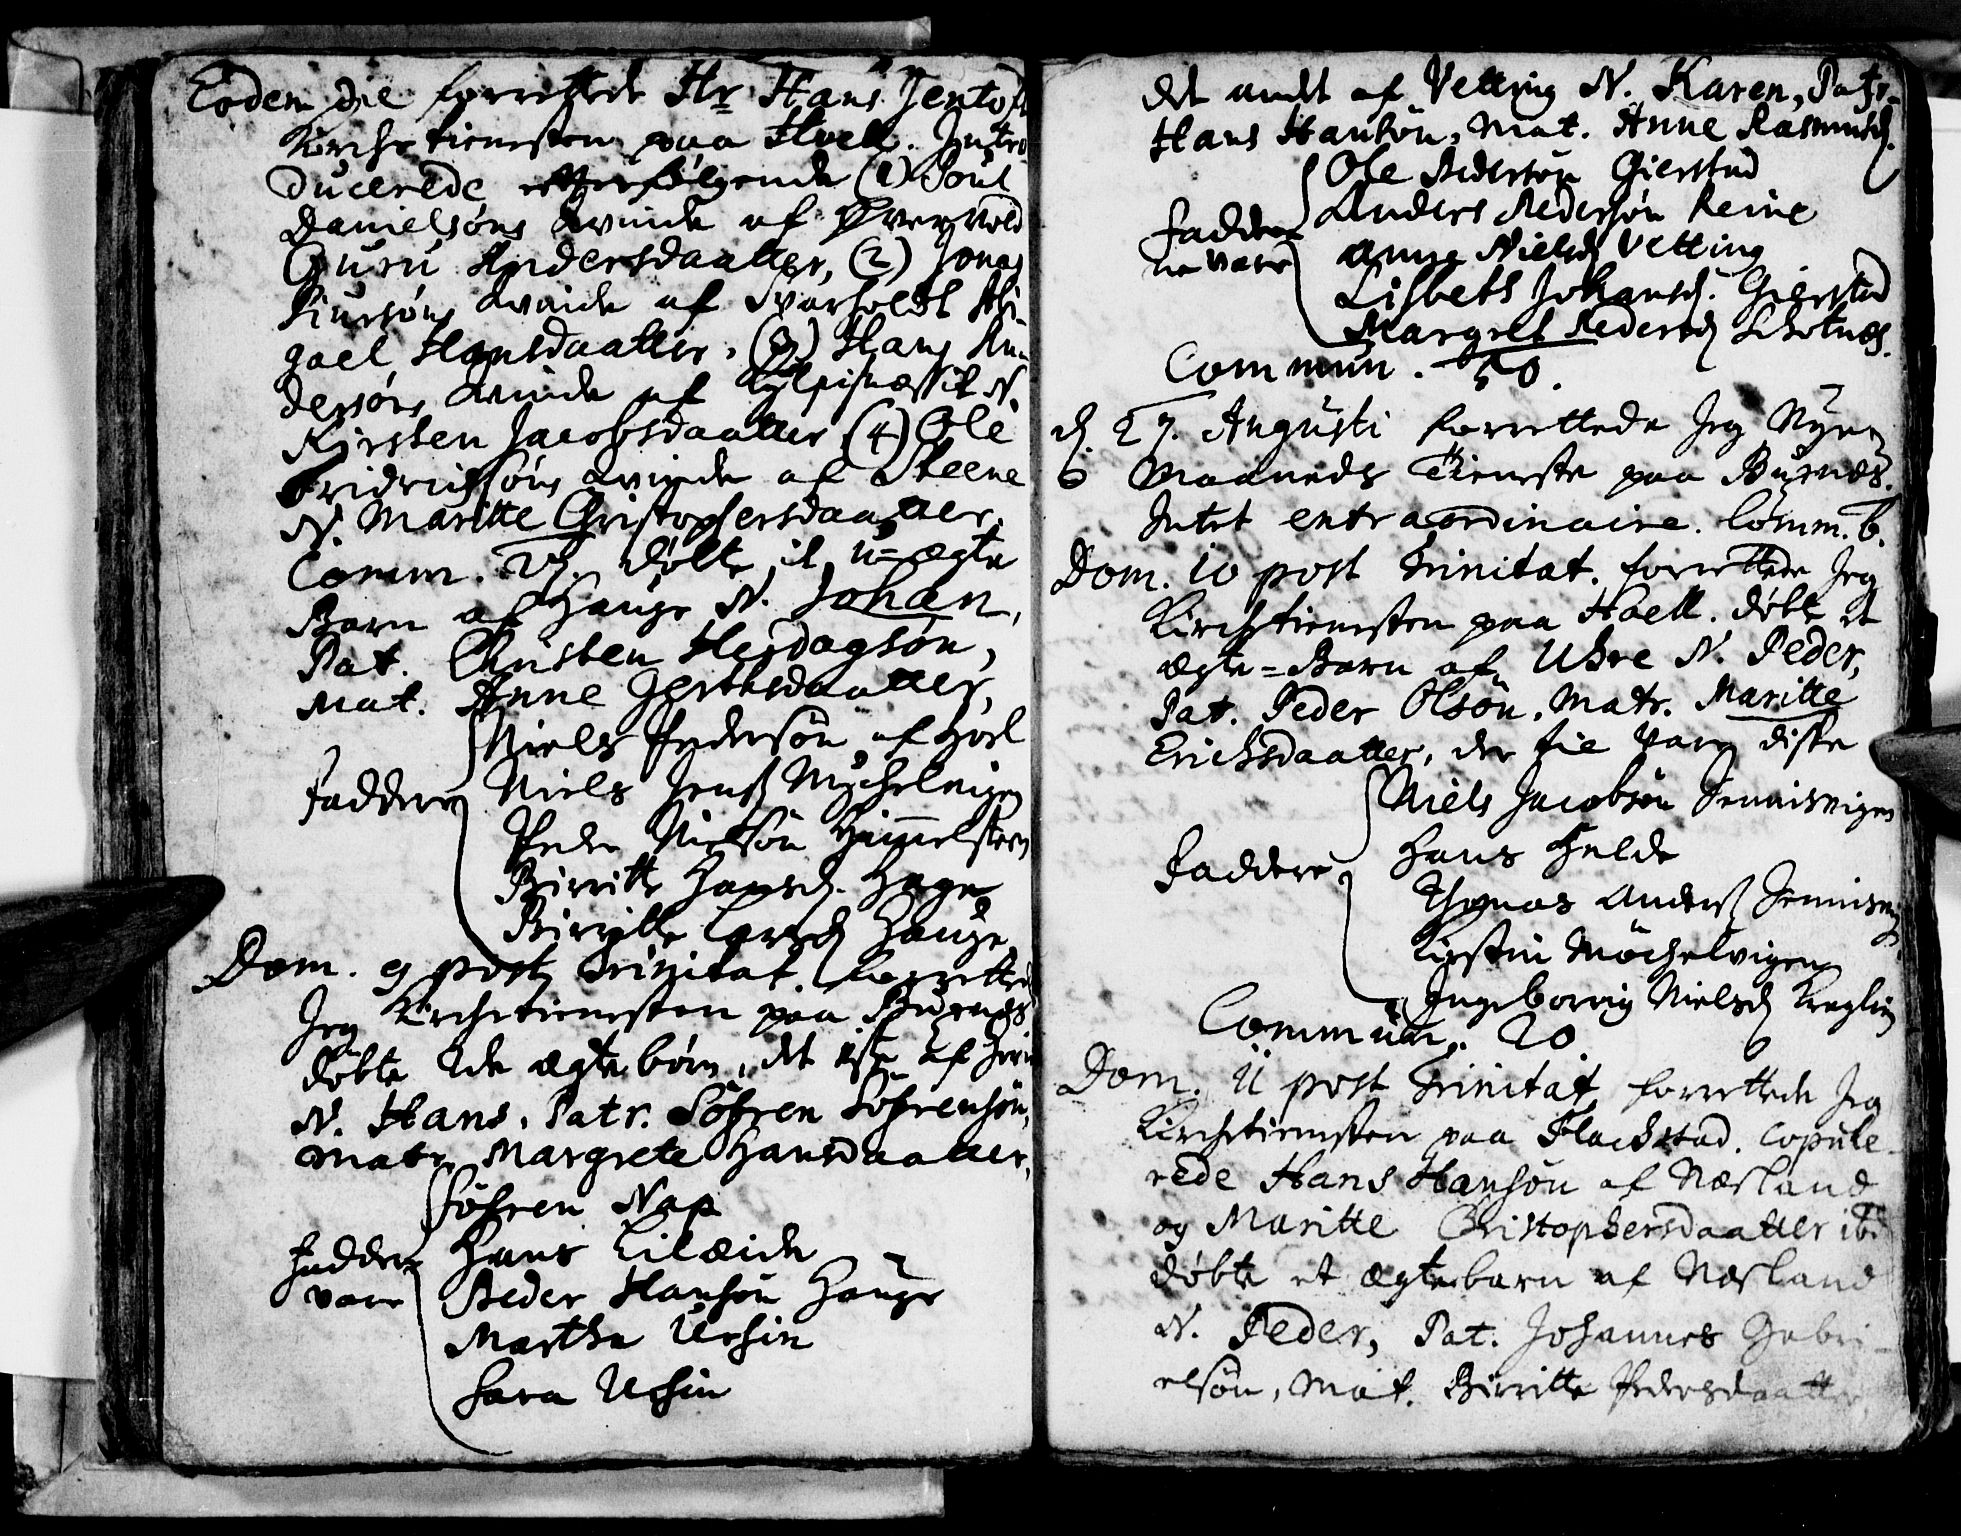 Eodem die forrettede Hr Hans Jentoft
Kirchetienesten paa Hoell. Intro
ducerede efterfølgende (1) Poul
Danielsøns Qvinde af
Guru Andersdaatter, (2) Jonas
Qvinde af Svarholdt Abi
gael Hansdaatter, (3) Hans An
dersøns Qvinde af N.
Kirsten Jacobsdaatter (4) Ole
Fridrichsøns Qvinde af Steene
N. Maritte Christophersdaatter.
Comm. døbte it u-ægte
Barn af Hauge N. Johan,
Pat. Christen Herdagsøn,
Mat. Anne
Niels Pedersøn af Hoel
Faddere Niels Jenss Mychelvigen
Peder Nielsøn Himmelsteen
Birritte Hansd. Hage
Birritte Larsd Hauge
Dom. 9 post Trinitat. forrettede
Jeg Kirchetienesten paa Buxnæs
døbte 2de ægte børn, det 1ste af
N. Hans, Patr. Söfren Söfrensøn,
Matr. Margrete Hansdaatter,
Söfren Nap
Faddere Hans Lilæide
vare Peder Hansøn Hauge
Martha Ursin
Sara Ursin
det andet af Vetting N. Karen, Patr.
Hans Hansøn, Mat. Anne Rasmusd.
Ole Pedersøn Gierstad
Fadder Anders Pedersøn Reine
ne vare Anne Nielsd Vetting
Lisbeth Johansd. Gierstad
Margret Pedersd Schotnæs.
Commun. 50.
d. 27. Augusti forrettede Jeg Nye
Maaneds Tieneste paa Buxnæs.
Intet extraordinaire. Comm. 6.
Dom. 10 post Trinitat. forrettede Jeg
Kirchetienesten paa Hoell. døbte et
ægte-Barn af Uhre N. Peder,
Pat. Peder Olsøn, Matr. Maritte
Erichsdaatter, der til vare disse
Niels Jacobsøn Sennisvigen
Hans Helde
Faddere Thomas Anderss
Kirstin Möchelvigen
Ingeborrig Nielsd
Commun. 20
Dom. 11 post Trinitat. forrettede Jeg
Kirchetienesten paa Flackstad. Copule-
rede Hans Hansøn af Næsland
og Maritte Christophersdaatter ibd
døbte et ægtebarn af Næsland
N. Peder, Pat. Johannes Gabri-
elsøn, Mat. Birritte Pedersdaatter,